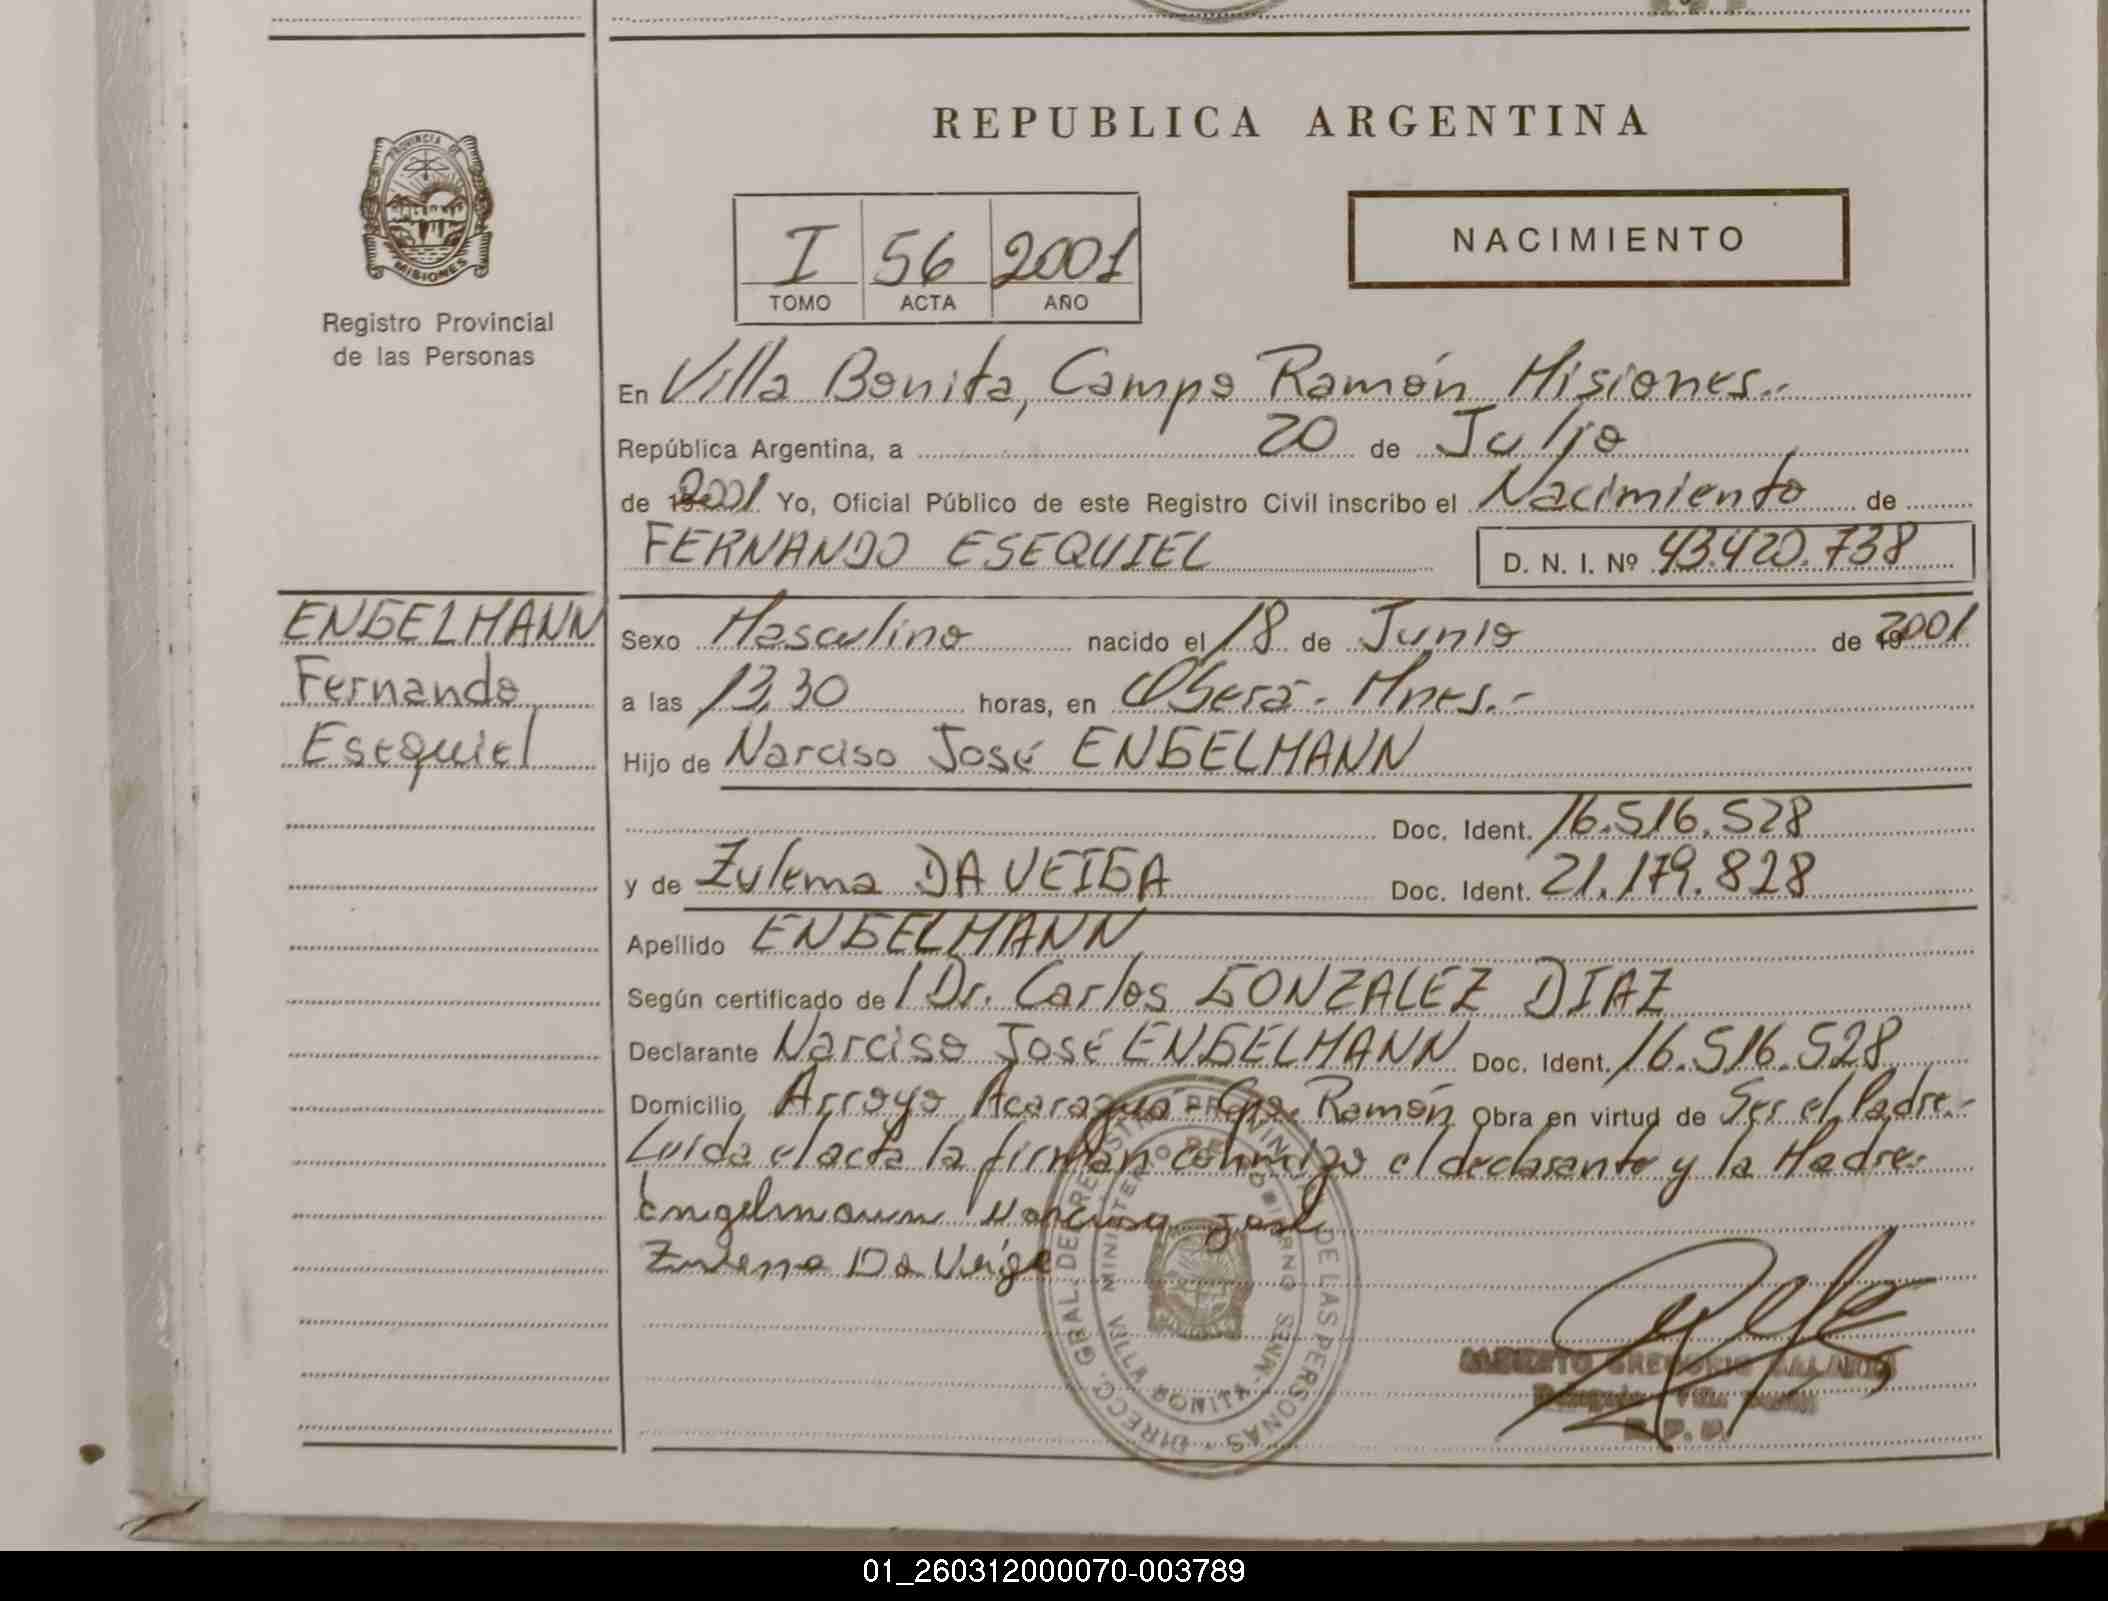 PROVINCIA DE
MISIONES
Registro Provincial
de las Personas
ENGELMANN
Fernando
Esequiel
REPUBLICA ARGENTINA
I 56 2001
TOMO ACTA AÑO
NACIMIENTO
En Villa Bonita, Campo Ramón Misiones.-
República Argentina, a 20 de Julio
de 2001 Yo, Oficial Público de este Registro Civil inscribo el Nacimiento de
FERNANDO ESEQUIEL D. N. I. Nº 43.420.738
Sexo Masculino nacido el 18 de Junio de 2001
a las 13,30 horas, en Oberá - Mnes.-
Hijo de Narciso José ENGELMANN
Doc. Ident. 16.516.528
y de Zulema DA VEIGA Doc. Ident. 21.179.828
Apellido ENGELMANN
Según certificado de l Dr. Carlos GONZALEZ DIAZ
Declarante Narciso José ENGELMANN Doc. Ident. 16.516.528
Domicilio Arroyo Acaragua - Cpo. Ramón Obra en virtud de Ser el Padre.-
Leída el acta la firman conmigo el declarante y la Madre.-
Engelmann Narciso José
Zulema Da Veiga
DIRECC. GRAL. DE REGISTRO PROVINCIAL DE LAS PERSONAS
MINISTERIO DE GOBIERNO
VILLA BONITA - MNES
ALBERTO GREGORIO
R. P. P.
01_260312000070-003789